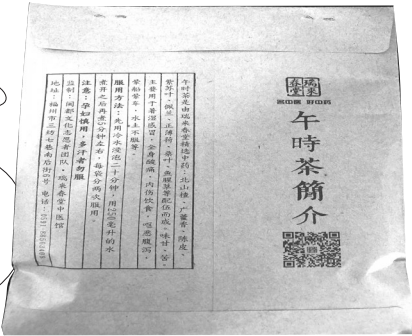 瑞來春堂
名中医 好中药
午時茶簡介
午时茶是由瑞来春堂精选中药：北山楂、广藿香、陈皮、
紫苏叶、佩兰、正薄荷、桑叶、鱼腥草等配伍而成，味甘、苦。
主要用于暑湿感冒，全身酸痛，内伤饮食，呕恶腹泻，
晕船晕车，水土不服等。
服用方法：先用冷水浸泡二十分钟，用250毫升的水
煮开之后再煮5分钟左右，每袋分两次服用。
注意：孕妇慎用，多汗者勿服
监制：闽都文化志愿者团队·瑞来春堂中医馆
地址：福州市三坊七巷南后街 号 电话：0591